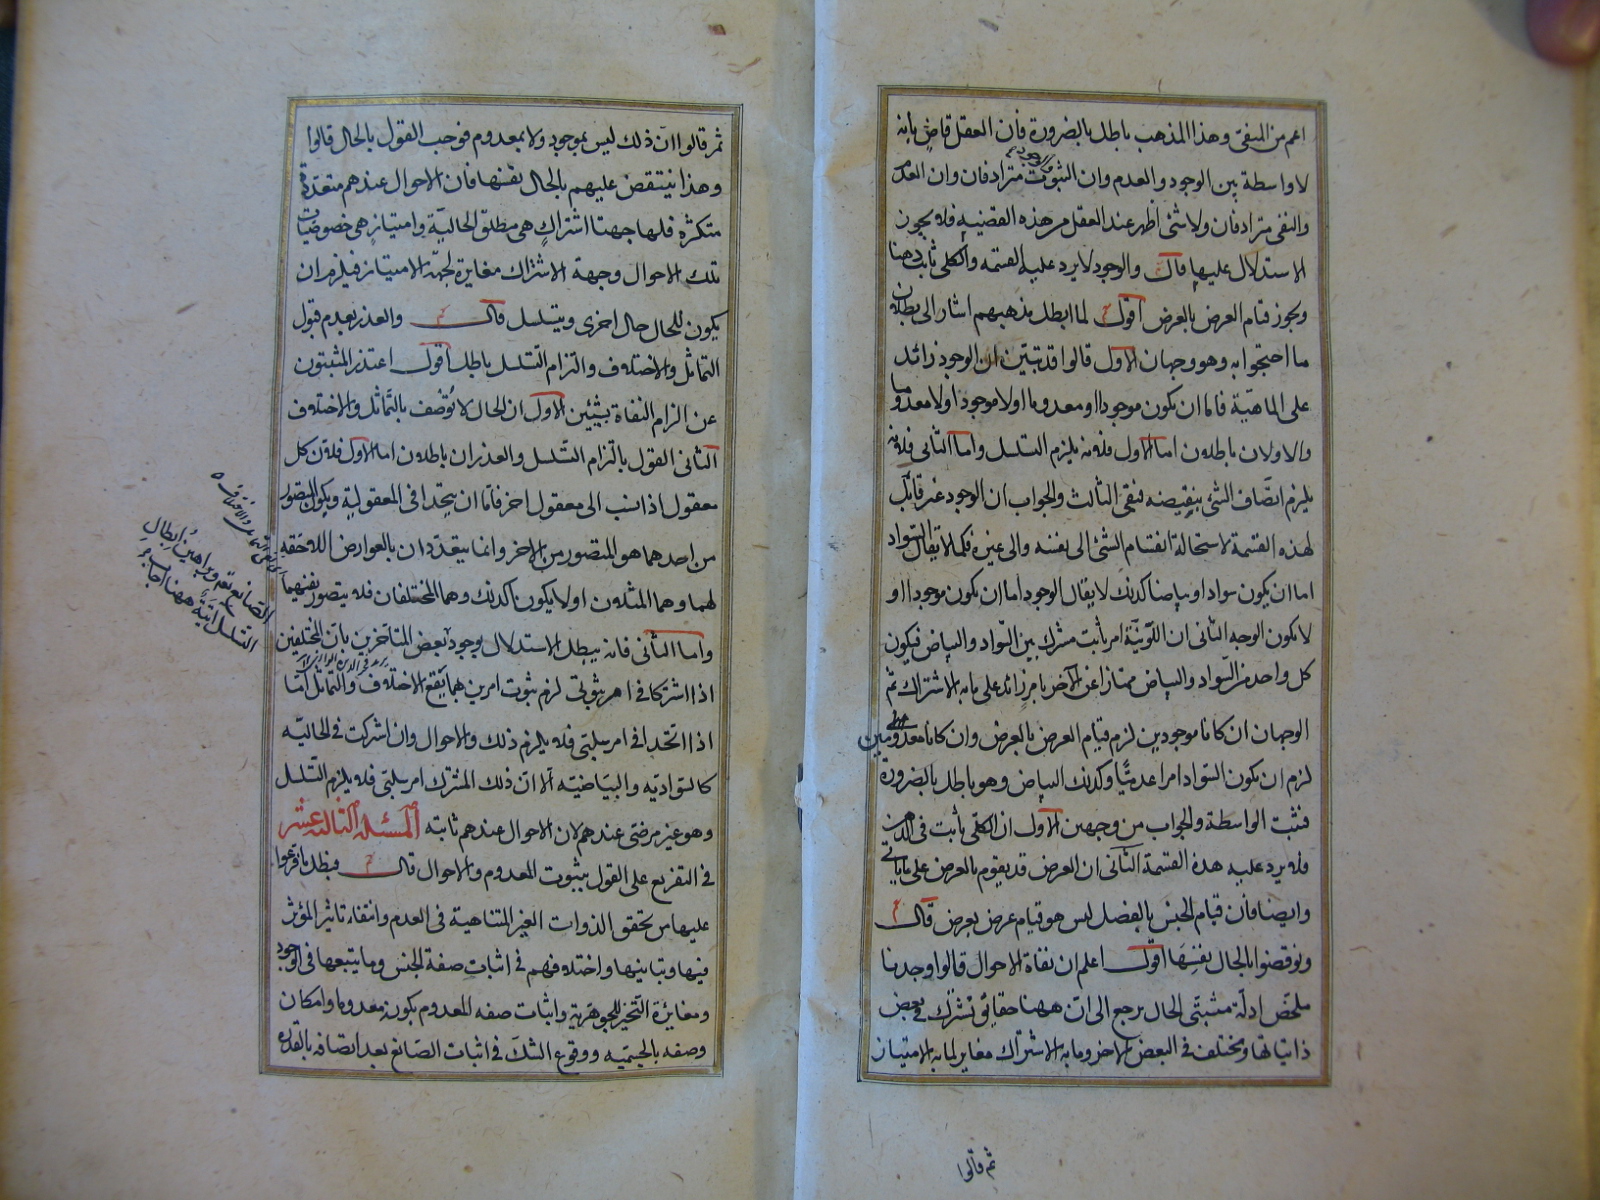 اعم من المنفى وهذا المذهب باطل بالضرورة فان العقل قاض بانه
لا واسطة بين الوجود والعدم وان الثبوت والوجود مترادفان وان العدم
والنفى مترادفان ولا شئ اظهر عند العقل من هذه القضيه فلا يجوز
الاستدلال عليها قال والوجود لا يرد عليه القسمه والكلى ثابت ذهنا
ويجوز قيام العرض بالعرض اقول لما ابطل مذهبهم اشار الى بطلان
ما احتجوا به وهو وجهان الاول قالوا قد تبين ان الوجود زائد
على الماهيّة فاما ان يكون موجودا او معدوما او لا موجودا ولا معدوما
والاولان باطلان اما الاول فلانه يلزم التسلسل واما الثانى فلانه
يلزم اتصاف الشئ بنقيضه فبقى الثالث والجواب ان الوجود غير قابل
لهذه القسمة لاستحالة انقسام الشئ الى نفسه والى غيره فكما لا يقال السواد
اما ان يكون سوادا او بياضا كذلك لا يقال الوجود اما ان يكون موجودا او
لا يكون الوجه الثانى ان اللونيّة امر ثابت مشترك بين السّواد والبياض فيكون
كل واحد من السّواد والبياض ممتازا عن الآخر بامر زائد على ما به الاشتراك ثم
الوجهان ان كانا موجودين لزم قيام العرض بالعرض وان كانا معدومين
لزم ان يكون السّواد امرا عدميّا وكذلك البياض وهو باطل بالضرورة
فثبت الواسطة والجواب من وجهين الاول ان الكلّى ثابت فى الذهن
فلا يرد عليه هذه القسمة الثّانى ان العرض قد يقوم بالعرض على ما يأتى
وايضا فان قيام الجنس بالفصل ليس هو قيام عرض بعرض قال
ونوقضوا بالحال نفسها اقول اعلم ان نفاة الاحوال قالوا وجدنا
ملخص ادلّة مثبتى الحال يرجع الى انّ ههنا حقائق تشترك فى بعض
ذاتياتها وتختلف فى البعض الاخر وما به الاشتراك مغاير لما به الامتياز
ثم قالوا
ثمّ قالوا انّ ذلك ليس بموجود ولا بمعدوم فوجب القول بالحال قالوا
وهذا ينتقض عليهم بالحال نفسها فان الاحوال عندهم متعدّدة
متكثرة فلها جهتا اشتراك هى مطلق الحاليّة وامتياز هى خصوصيات
تلك الاحوال وجهة الاشتراك مغايرة لجهة الامتياز فيلزم ان
يكون للحال حال اخرى ويتسلسل قال والعذر بعدم قبول
التماثل والاختلاف والتزام التسلسل باطل اقول اعتذر المثبتون
عن الزام النفاة بشيئين الاول ان الحال لا تُوصف بالتّماثل والاختلاف
الثانى القول بالتزام التسلسل والعذران باطلان اما الاول فلان كل
معقول اذا نسب الى معقول اخر فاما ان يتحدا فى المعقولية ويكون المتصور
من احدهما هو المتصور من الاخر وانما يتعدّدان بالعوارض اللاحقه
لهما وهما المثلان او لا يكونا كذلك وهما المختلفان فلا يتصور نفيهما
واما الثّانى فانه يبطل الاستدلال بوجود بعض المتاخرين بانّ المختلفين
اذا اشتركا فى امر ثبوتى لزم ثبوت امرين بهما يقع الاختلاف والتماثل امّا
اذا اتّحدا فى امر سلبى فلا يلزم ذلك والاحوال وان اشتركت فى الحاليّه
كالسّواديّه والبياضيّه الا انّ ذلك المشترك امر سلبى فلا يلزم التّسلسل
وهو غير مرضى عندهم لان الاحوال عندهم ثابته المسئلة الثالثة عشر
فى التفريع على القول بثبوت المعدوم والاحوال قال فبطل ما فرعوا
عليها من تحقق الذوات الغير المتناهية فى العدم وانتفاء تاثير المؤثر
فيها وتباينها واختلافهم فى اثبات صفة الجنس وما يتبعها فى الوجود
ومغائرة التّحيز للجوهريّة واثبات صفه المعدوم بكونه معدوما وامكان
وصفه بالجسميّه ووقوع الشكّ فى اثبات الصّانع بعد اتصافه بالقدره
الصانع تعم وبراهين ابطال
التسلسل آتية ههنا اجاب